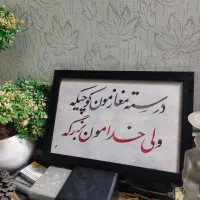 درسته مغازمون کوچیکه
ولی خدامون بزرگه